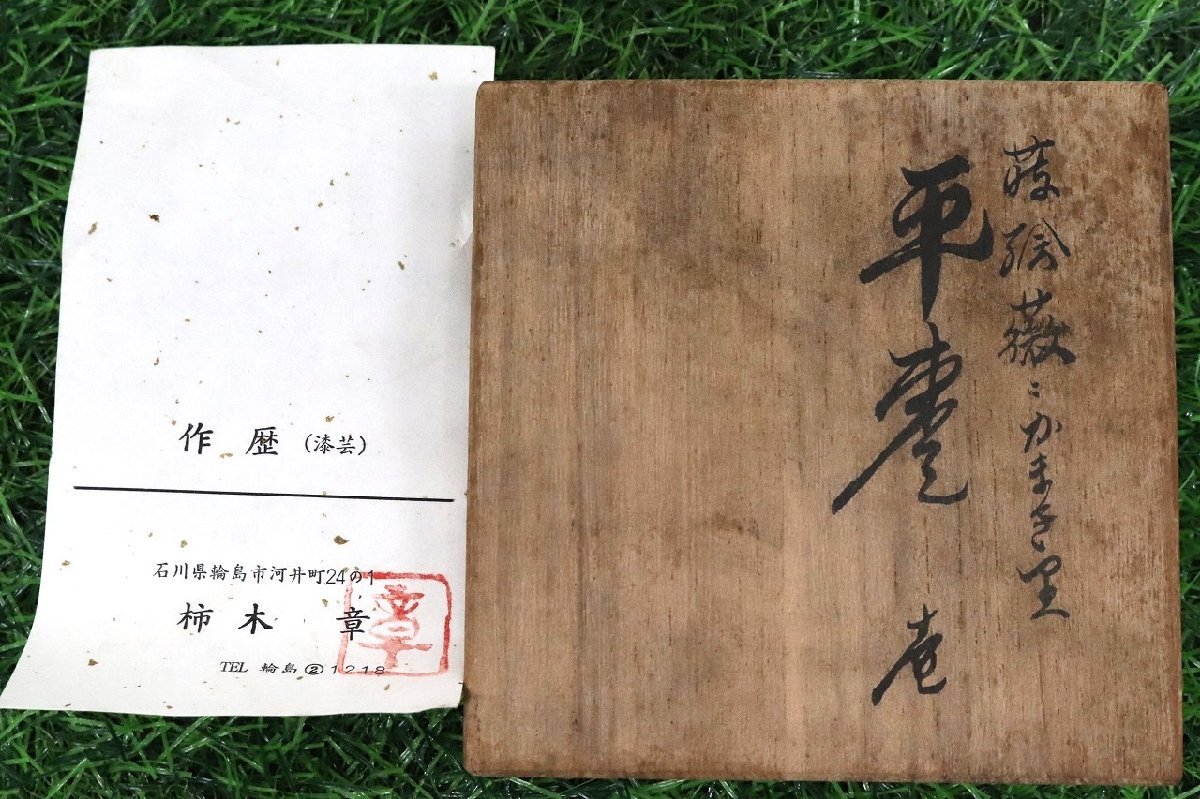 作歴(漆芸)
石川県輪島市河井町24の1
柿木 章
TEL 輪島②1218
章
蒔絵薇ニかまき里
平棗